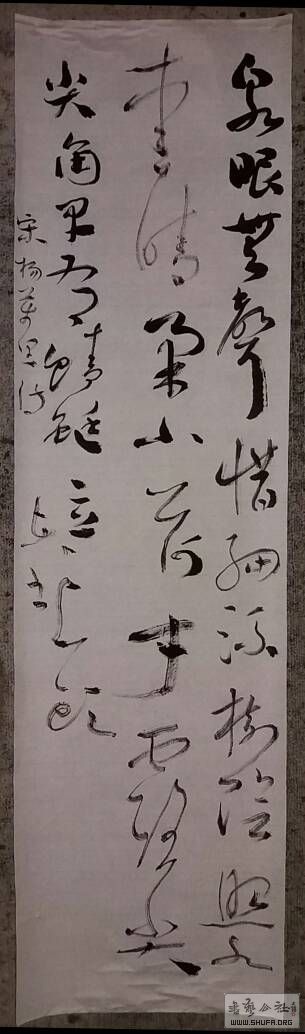 泉眼無聲惜細流樹陰照水
愛晴柔小荷才露尖
尖角早有蜻蜓立上頭
宋楊萬里詩
書藝公社
WWW.SHUFA.ORG